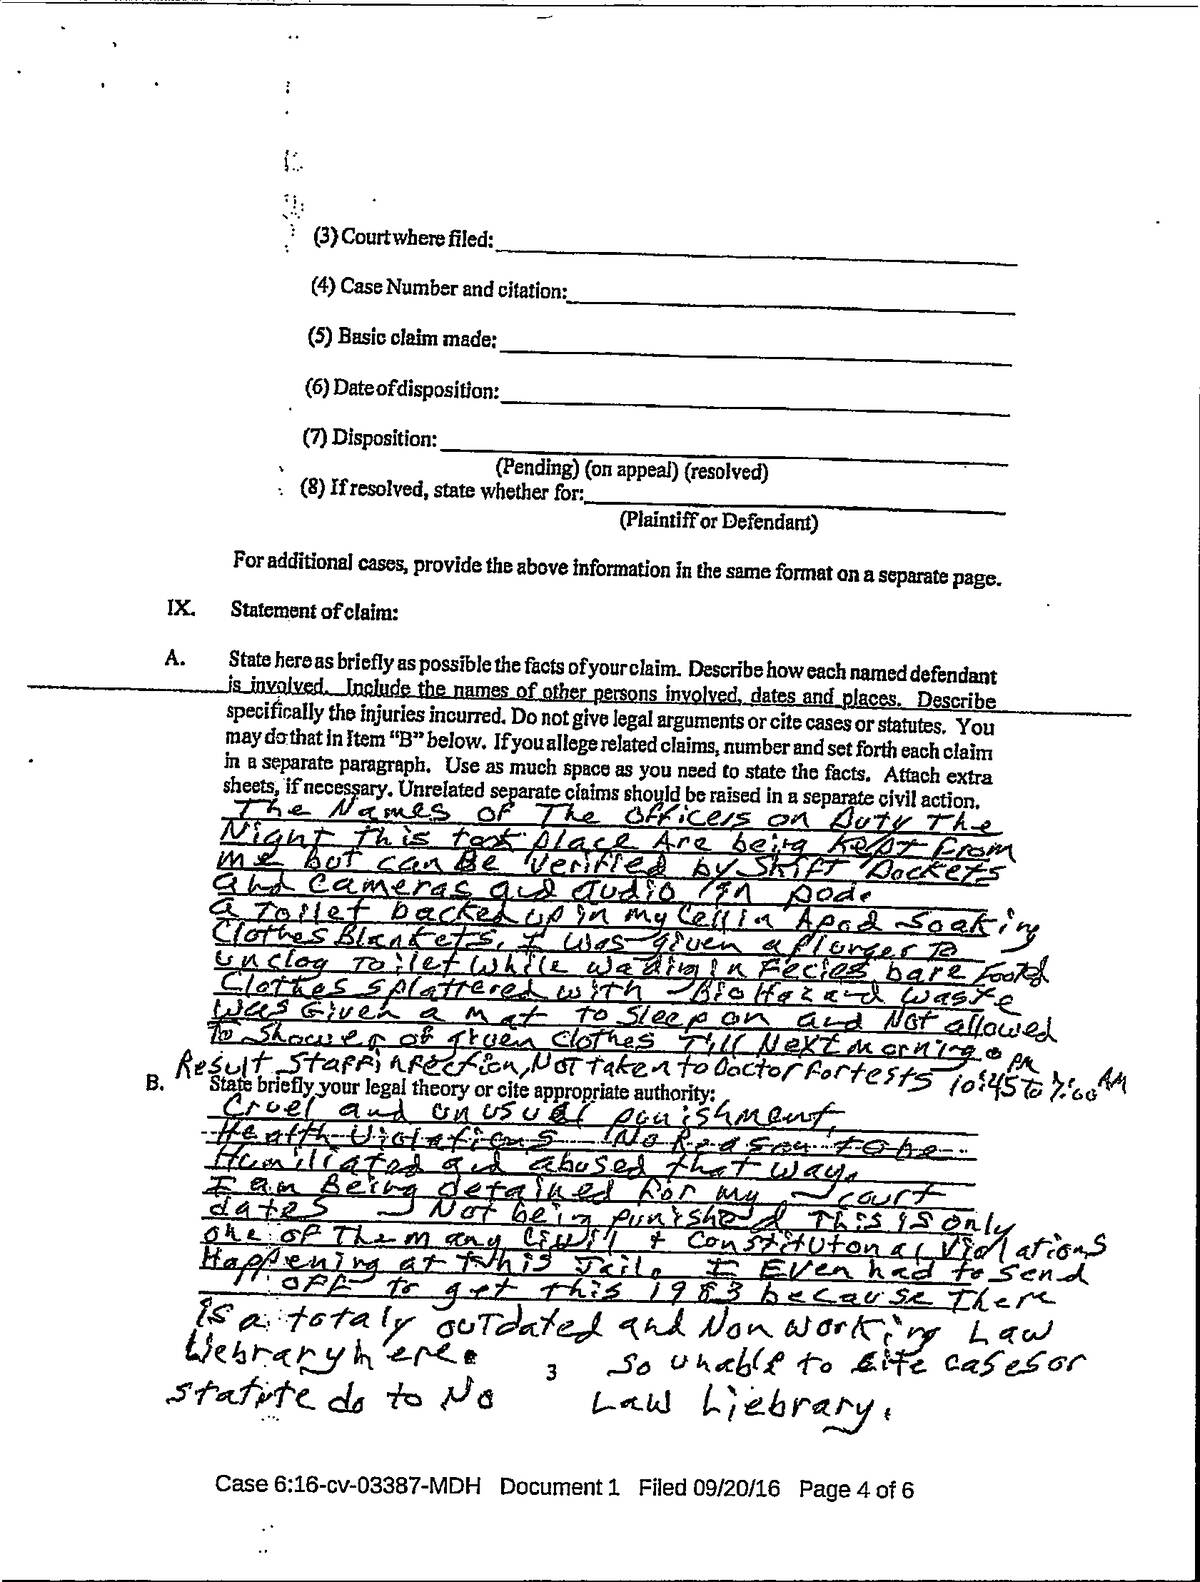 (3) Court where filed:
(4) Case Number and citation:
(5) Basic claim made:
(6) Date of disposition:
(7) Disposition:
(Pending) (on appeal) (resolved)
(8) If resolved, state whether for:
(Plaintiff or Defendant)
For additional cases, provide the above information in the same format on a separate page.
IX. Statement of claim:
A. State here as briefly as possible the facts of your claim. Describe how each named defendant
is involved. Include the names of other persons involved, dates and places. Describe
specifically the injuries incurred. Do not give legal arguments or cite cases or statutes. You
may do that in Item "B" below. If you allege related claims, number and set forth each claim
in a separate paragraph. Use as much space as you need to state the facts. Attach extra
sheets, if necessary. Unrelated separate claims should be raised in a separate civil action.
The Names of The officers on Duty The
Night This took place Are being kept From
me but can Be verified by Shift Dockets
and cameras and audio in pod.
a Toilet backed up in my Cell in Apod soaking
Clothes Blankets, I was given a plunger To
unclog Toilet while wadingin Fecies bare Footed
Clothes splattered with BioHazard waste
was Given a mat to sleep on and Not allowed
To Shower or given Clothes Till Next morning.
Result Staff infection, Not taken to Doctor for tests 10:45 PM to 7:00 AM
B. State briefly your legal theory or cite appropriate authority:
Cruel and unusual punishment,
Health Violations No Reason to be
Humiliated and abused that way.
I am Being detained for my court
dates Not being punished This is only
one of The many Civil + Constitutonal Violations
Happening at this Jail. I Even had to send
off to get this 1983 because There
is a totaly outdated and Non working Law
Liebrary here. so unable to cite cases or
3
statute do to No Law Liebrary.
Case 6:16-cv-03387-MDH Document 1 Filed 09/20/16 Page 4 of 6